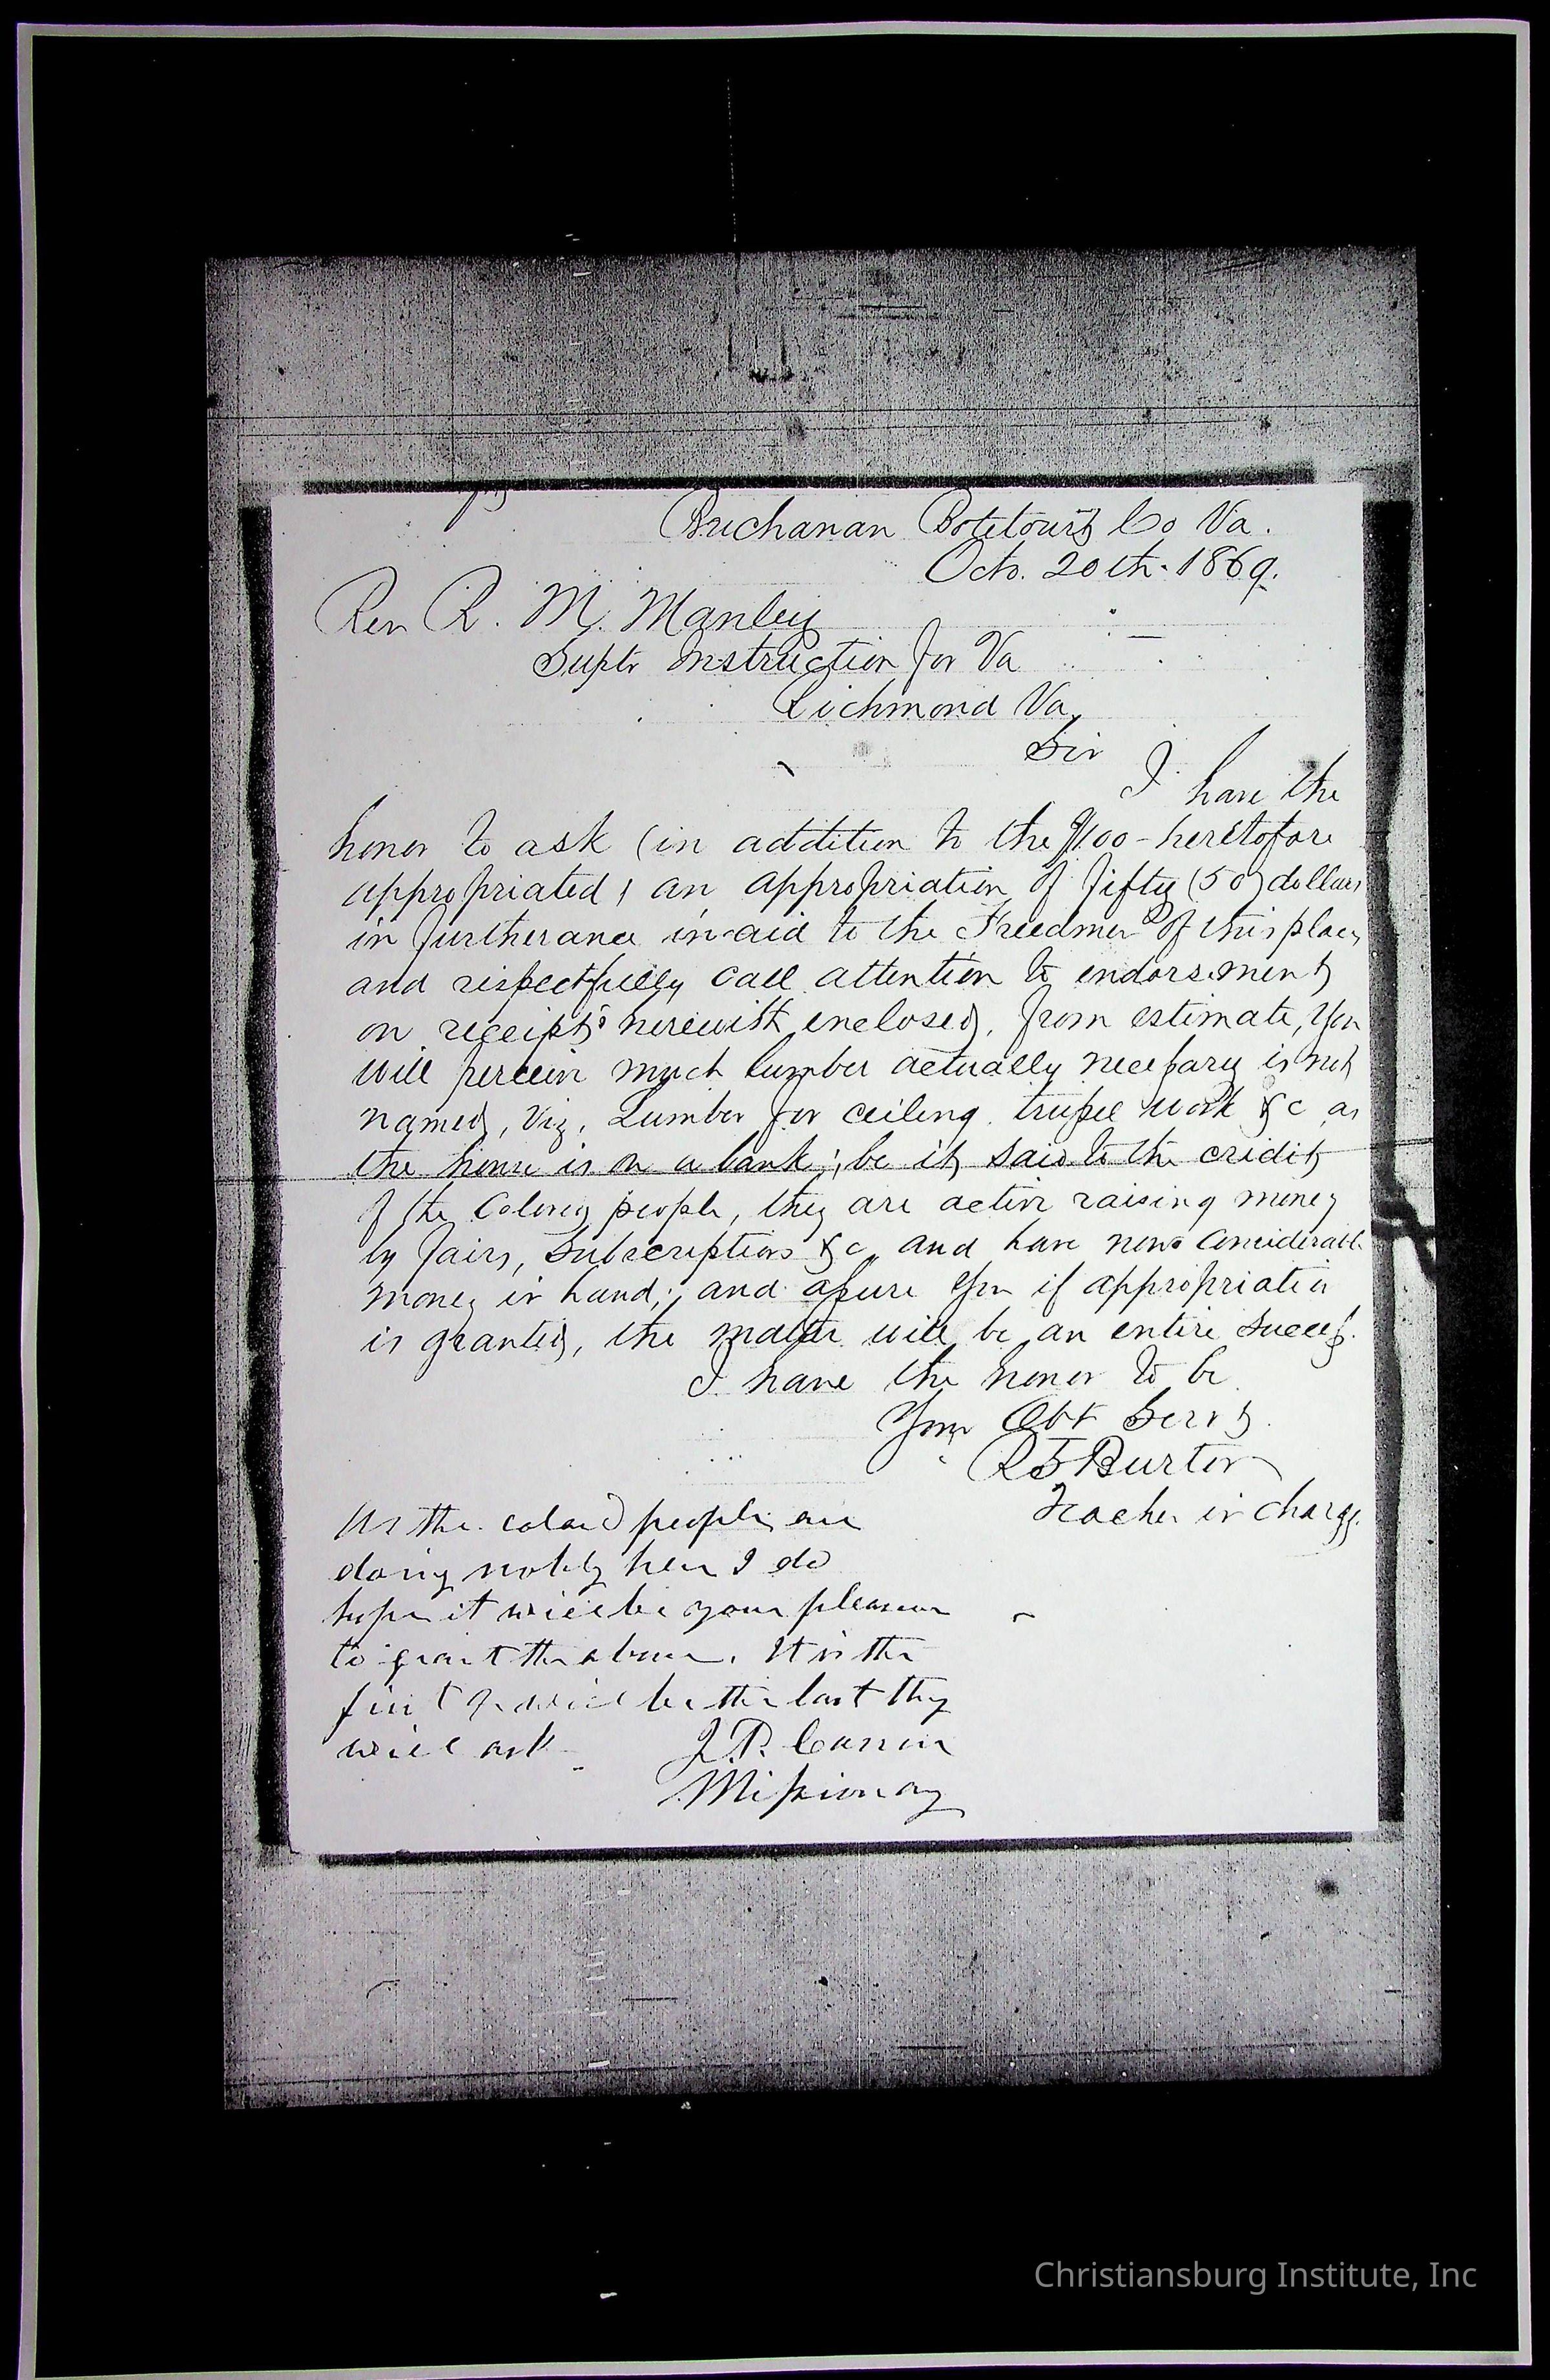 Buchanan Botetourt Co Va.
Octo. 20th. 1869.
Rev R. M. Manley
Supt Instruction for Va
Richmond Va,
Sir
I have the
honor to ask (in addition to the $100 - heretofore
appropriated, an appropriation of fifty (50) dollars
in furtherance in aid to the Freedmen of this place
and respectfully call attention to endorsement
on receipts herewith enclosed, from estimate, you
will perceive much lumber actually necessary is not
named, viz, Lumber for ceiling, &c as
the house is on a bank; be it said to the credit
of the Colored people, they are active raising money
by fairs, Subscriptions &c, and have now considerable
money in hand; and assure you if appropriation
is granted, the matter will be an entire success.
I have the honor to be
Your Obt Servt
R T Burton
Teacher in charge.
As the colord people are
doing nobly here I do
hope it will be your pleasure
to grant the above. It is the
first & will be the last they
will ask
J. P.
Missionary
Christiansburg Institute, Inc